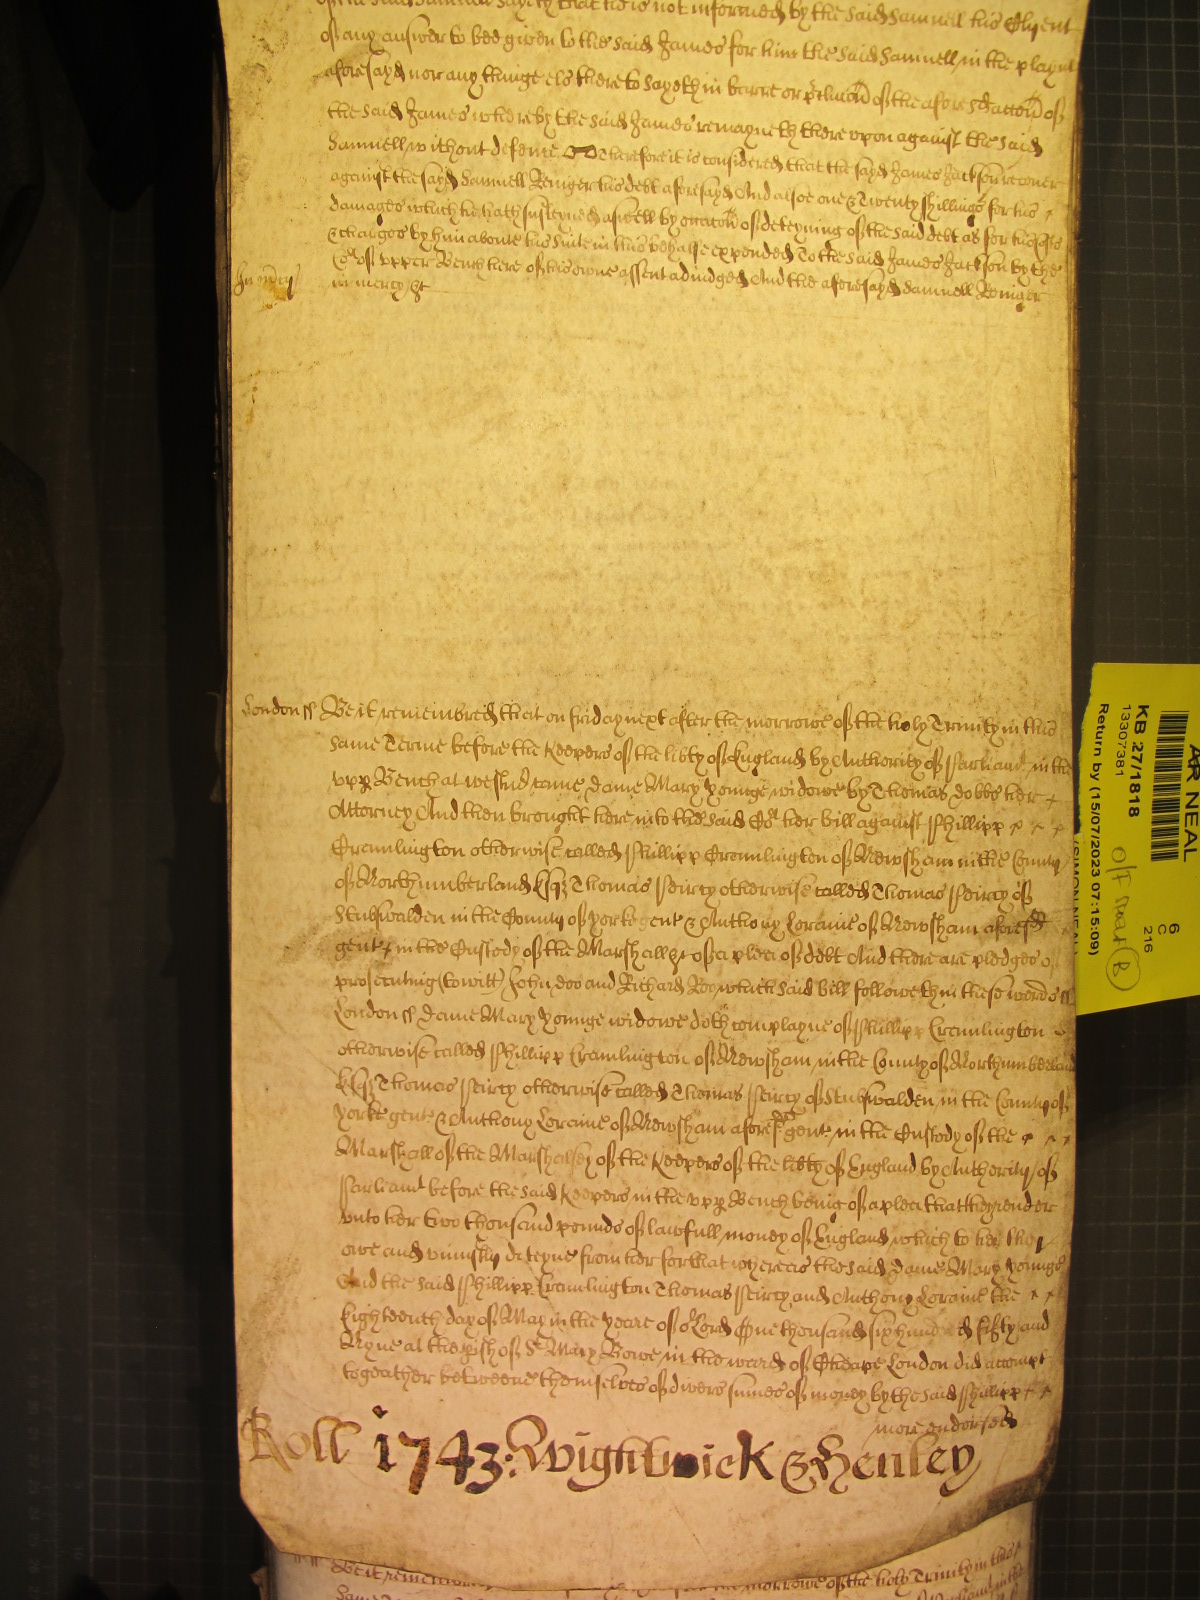 of the said Samuell sayeth that hee is not informed by the said Samuell his Clyent
of any answer to bee given to the said James for him the said Samuell in the playnt
aforesayd nor any thinge els there to sayeth in barre or of the aforesd accon of
the said James whereby the said James remayneth there upon against the said
Samuell without defence Therefore it is considered that the sayd James Jackson recover
against the sayd Samuell Reniger his debt aforesayd And alsoe one & Twenty shillings for his
damages which he hath susteyned aswell by occacon of deteyning of the said debt as for his costs
& charges by him aboute his suite in his behalfe expended To the said James Jackson by the
Cort of upper Bench here of his owne assent adiudged And the aforesayd Samuell Reniger
In mercy in mercy &c
London ss Be it remembred that on friday next after the morrowe of the holy Trinity in this
same Terme before the Keepers of the libty of England by Authority of Parliamt in the
upp Bench at Westmr came dame Mary Younge widowe by Thomas dobbs her
Attorney And then brought here into the said Cort her bill against Phillipp
Cramlington otherwise called Phillipp Cramlington of Newsham in the County
of Northumberland Esqr Thomas Peircy otherwise called Thomas Peircy of
Stubswalden in the County of Yorke gent & Anthony Loraine of Newsham aforesd
gent in the Custody of the Marshall &c of a plea of debt And there are pledges of
prosecuting (to witt) John doo and Richard Roo which said bill followeth in these words ss
London ss dame Mary Younge widowe doth complayne of Phillipp Cramlington
otherwise called Phillipp Cramlington of Newsham in the County of Northumberland
Esqr Thomas Peircy otherwise called Thomas Peircy of Stubswalden in the County of
Yorke gent & Anthony Loraine of Newsham aforesd gent in the Custody of the
Marshall of the Marshalsey of the Keepers of the libty of England by Authority of
Parliamt before the said Keepers in the upp Bench being of a plea that they render
unto her two thousand pounds of lawfull money of England which to her they
owe and uniustly deteyne from her for that whereas the said dame Mary Younge
And the said Phillipp Cramlington Thomas Peircy and Anthony Loraine the
Eighteenth day of May in the yeare of or Lord One thousand six hundred fifty and
Nyne at the pish of St Mary Bowe in the ward of Cheape London did accompt
togeather betweene themselves of divers sumes of money by the said Phillipp
more endorsed
Roll 1743: Wightwick & Henley
Be it remembred morrowe of the holy Trinity in this
AR NEAL
KB 27/1818
13307381
Return by (15/07/2023 07:15:09)
(SIMON NEAL)
6
C
216